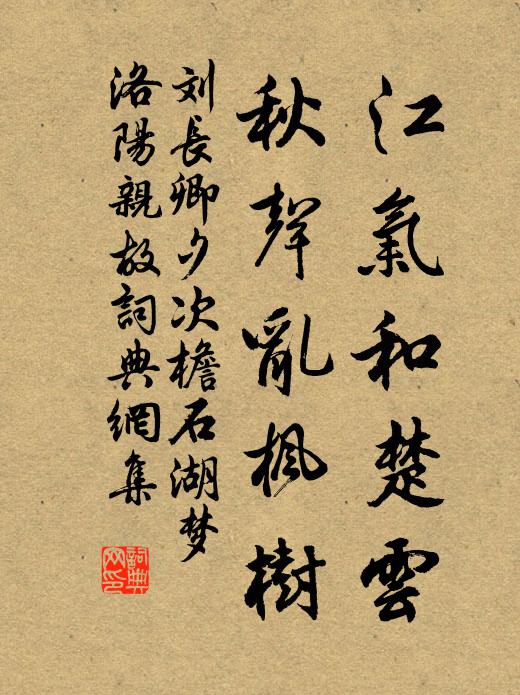 江氣和楚雲
秋聲亂楓樹
刘長卿夕次檐石湖梦
洛陽親故詞典網集
詞典网印